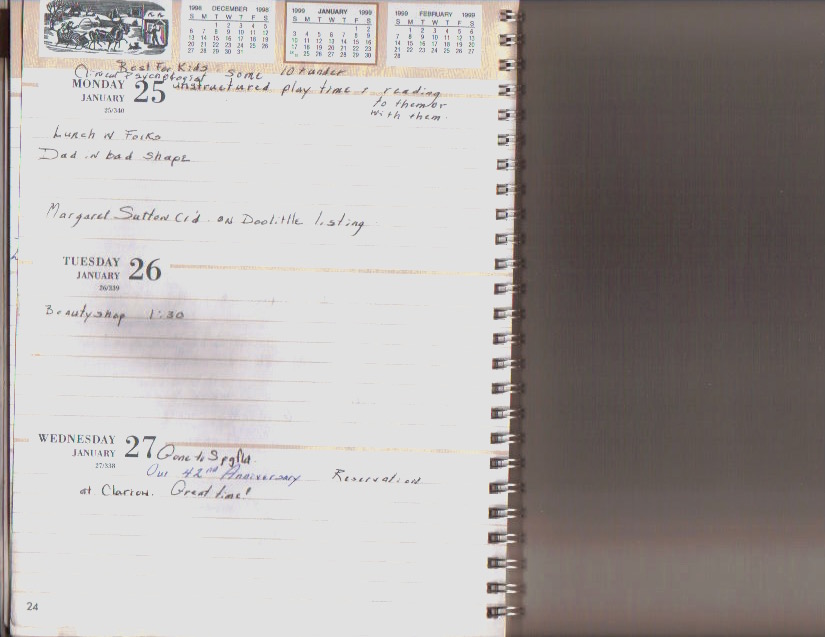 1998 DECEMBER 1998
S M T W T F S
1 2 3 4 5
6 7 8 9 10 11 12
13 14 15 16 17 18 19
20 21 22 23 24 25 26
27 28 29 30 31
1999 JANUARY 1999
S M T W T F S
1 2
3 4 5 6 7 8 9
10 11 12 13 14 15 16
17 18 19 20 21 22 23
25 26 27 28 29 30
1999 FEBRUARY 1999
S M T W T F S
1 2 3 4 5 6
7 8 9 10 11 12 13
14 15 16 17 18 19 20
21 22 23 24 25 26 27
28
Best For Kids
Psychologist some 10 + under
MONDAY 25 unstructured play time + reading
JANUARY to them or
25/340 with them.
Lunch w Folks
Dad in bad shape
Margaret Sutton on Doolittle listing
TUESDAY 26
JANUARY
26/339
Beautyshop 1:30
WEDNESDAY 27 Gone to Spgfld.
JANUARY
27/338 Our 42nd Anniversary Reservation
at Clarion. Great time!
24